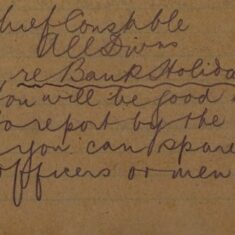 hief Constable
All Divns
re Bank Holida
ou will be good
o report by the
you can spare
officers or men